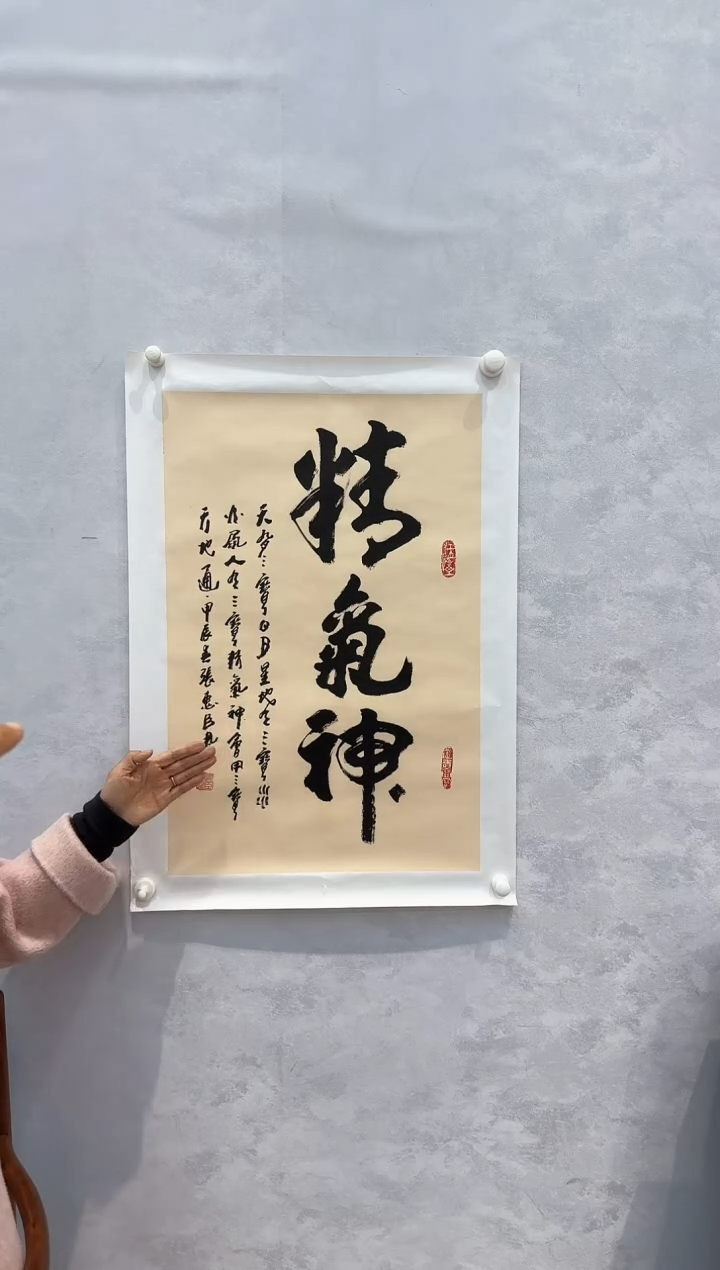 精氣神
天有三寶日月星地有三寶水
火風人有三寶精氣神會用三寶
天地通甲辰春張惠臣